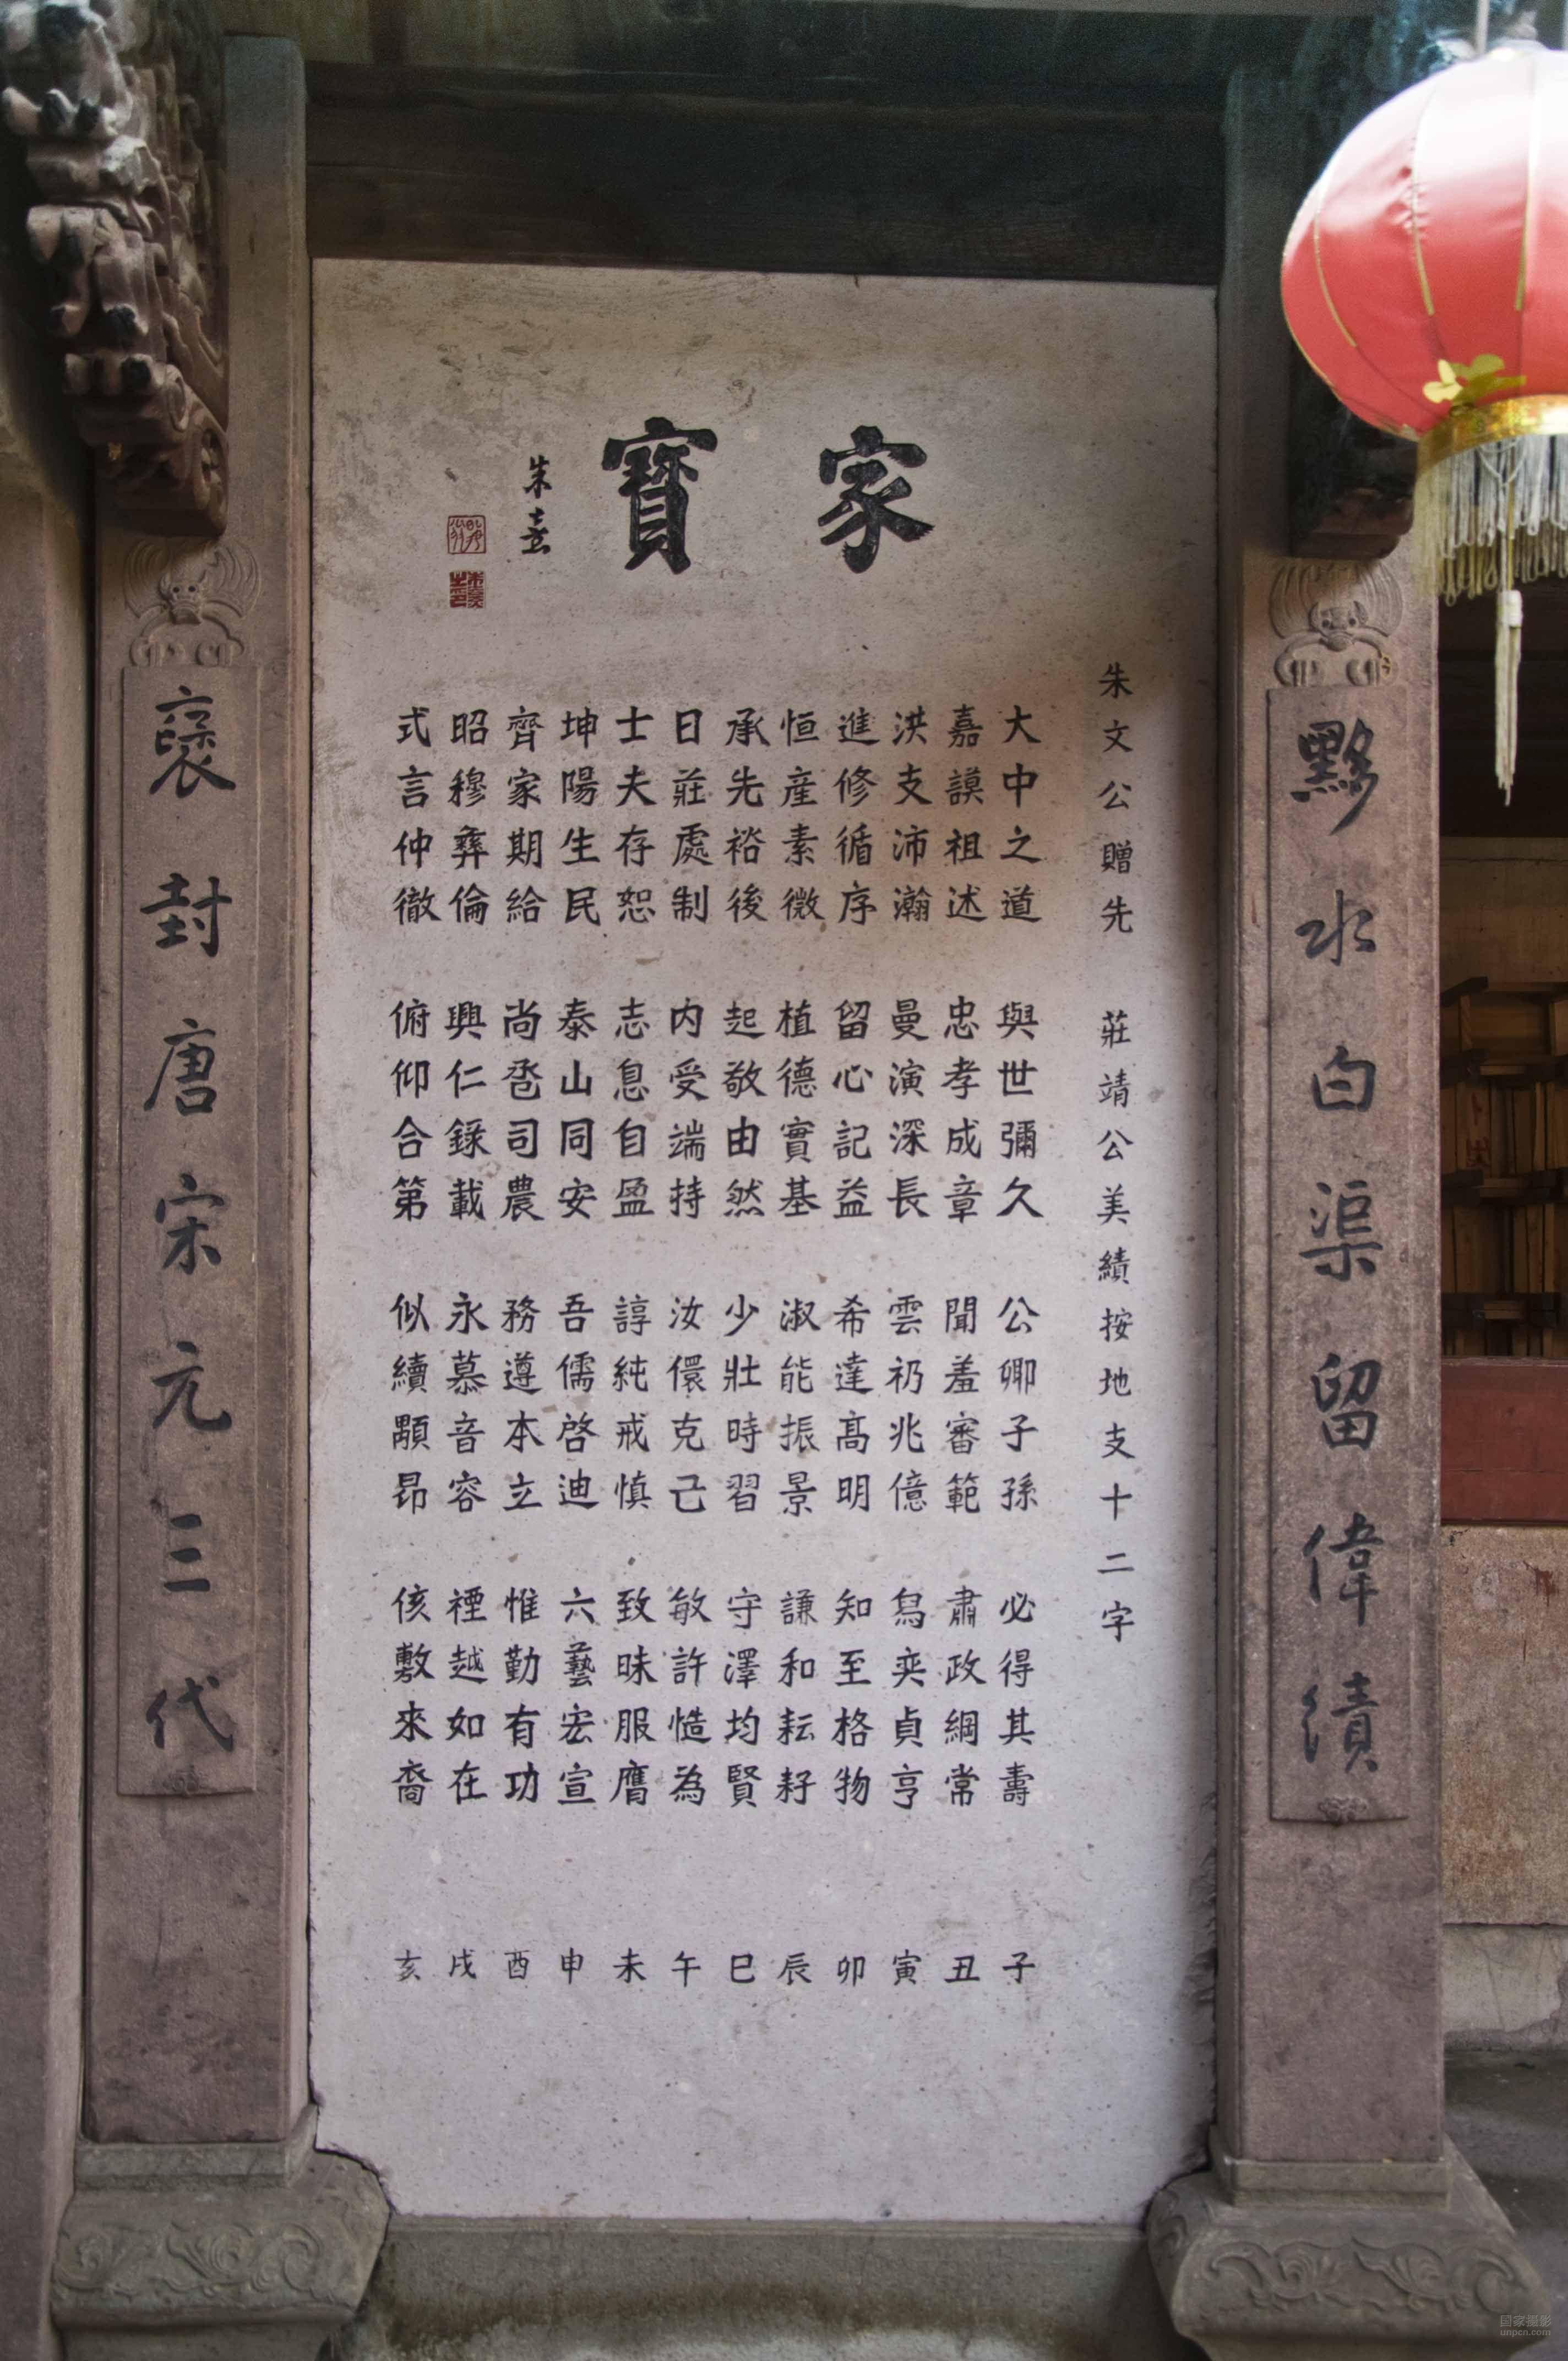 家寶
朱熹
朱文公贈先 莊靖公美績按地支十二字
大中之道 與世彌久 公卿子孫 必得其壽 子
嘉謨祖述 忠孝成章 聞羞審範 肅政綱常 丑
洪支沛瀚 曼演深長 雲礽兆億 舄奕貞亨 寅
進修循序 留心記益 希達高明 知至格物 卯
恒産素微 植德實基 淑能振景 謙和耘耔 辰
承先裕後 起敬由然 少壯時習 守澤均賢 巳
日莊處制 内受端持 汝儇克己 敏許慥為 午
士夫存恕 志息自盈 諄純戒慎 致昧服膺 未
坤陽生民 泰山同安 吾儒啓迪 六藝宏宣 申
齊家期給 尚嗇司農 務遵本立 惟勤有功 酉
昭穆彝倫 興仁錄載 永慕音容 禋越如在 戌
式言仲徹 俯仰合第 似續顒昂 侅敷來裔 亥
黟水白渠留偉績
褒封唐宋元三代
国家摄影
unpcn.com